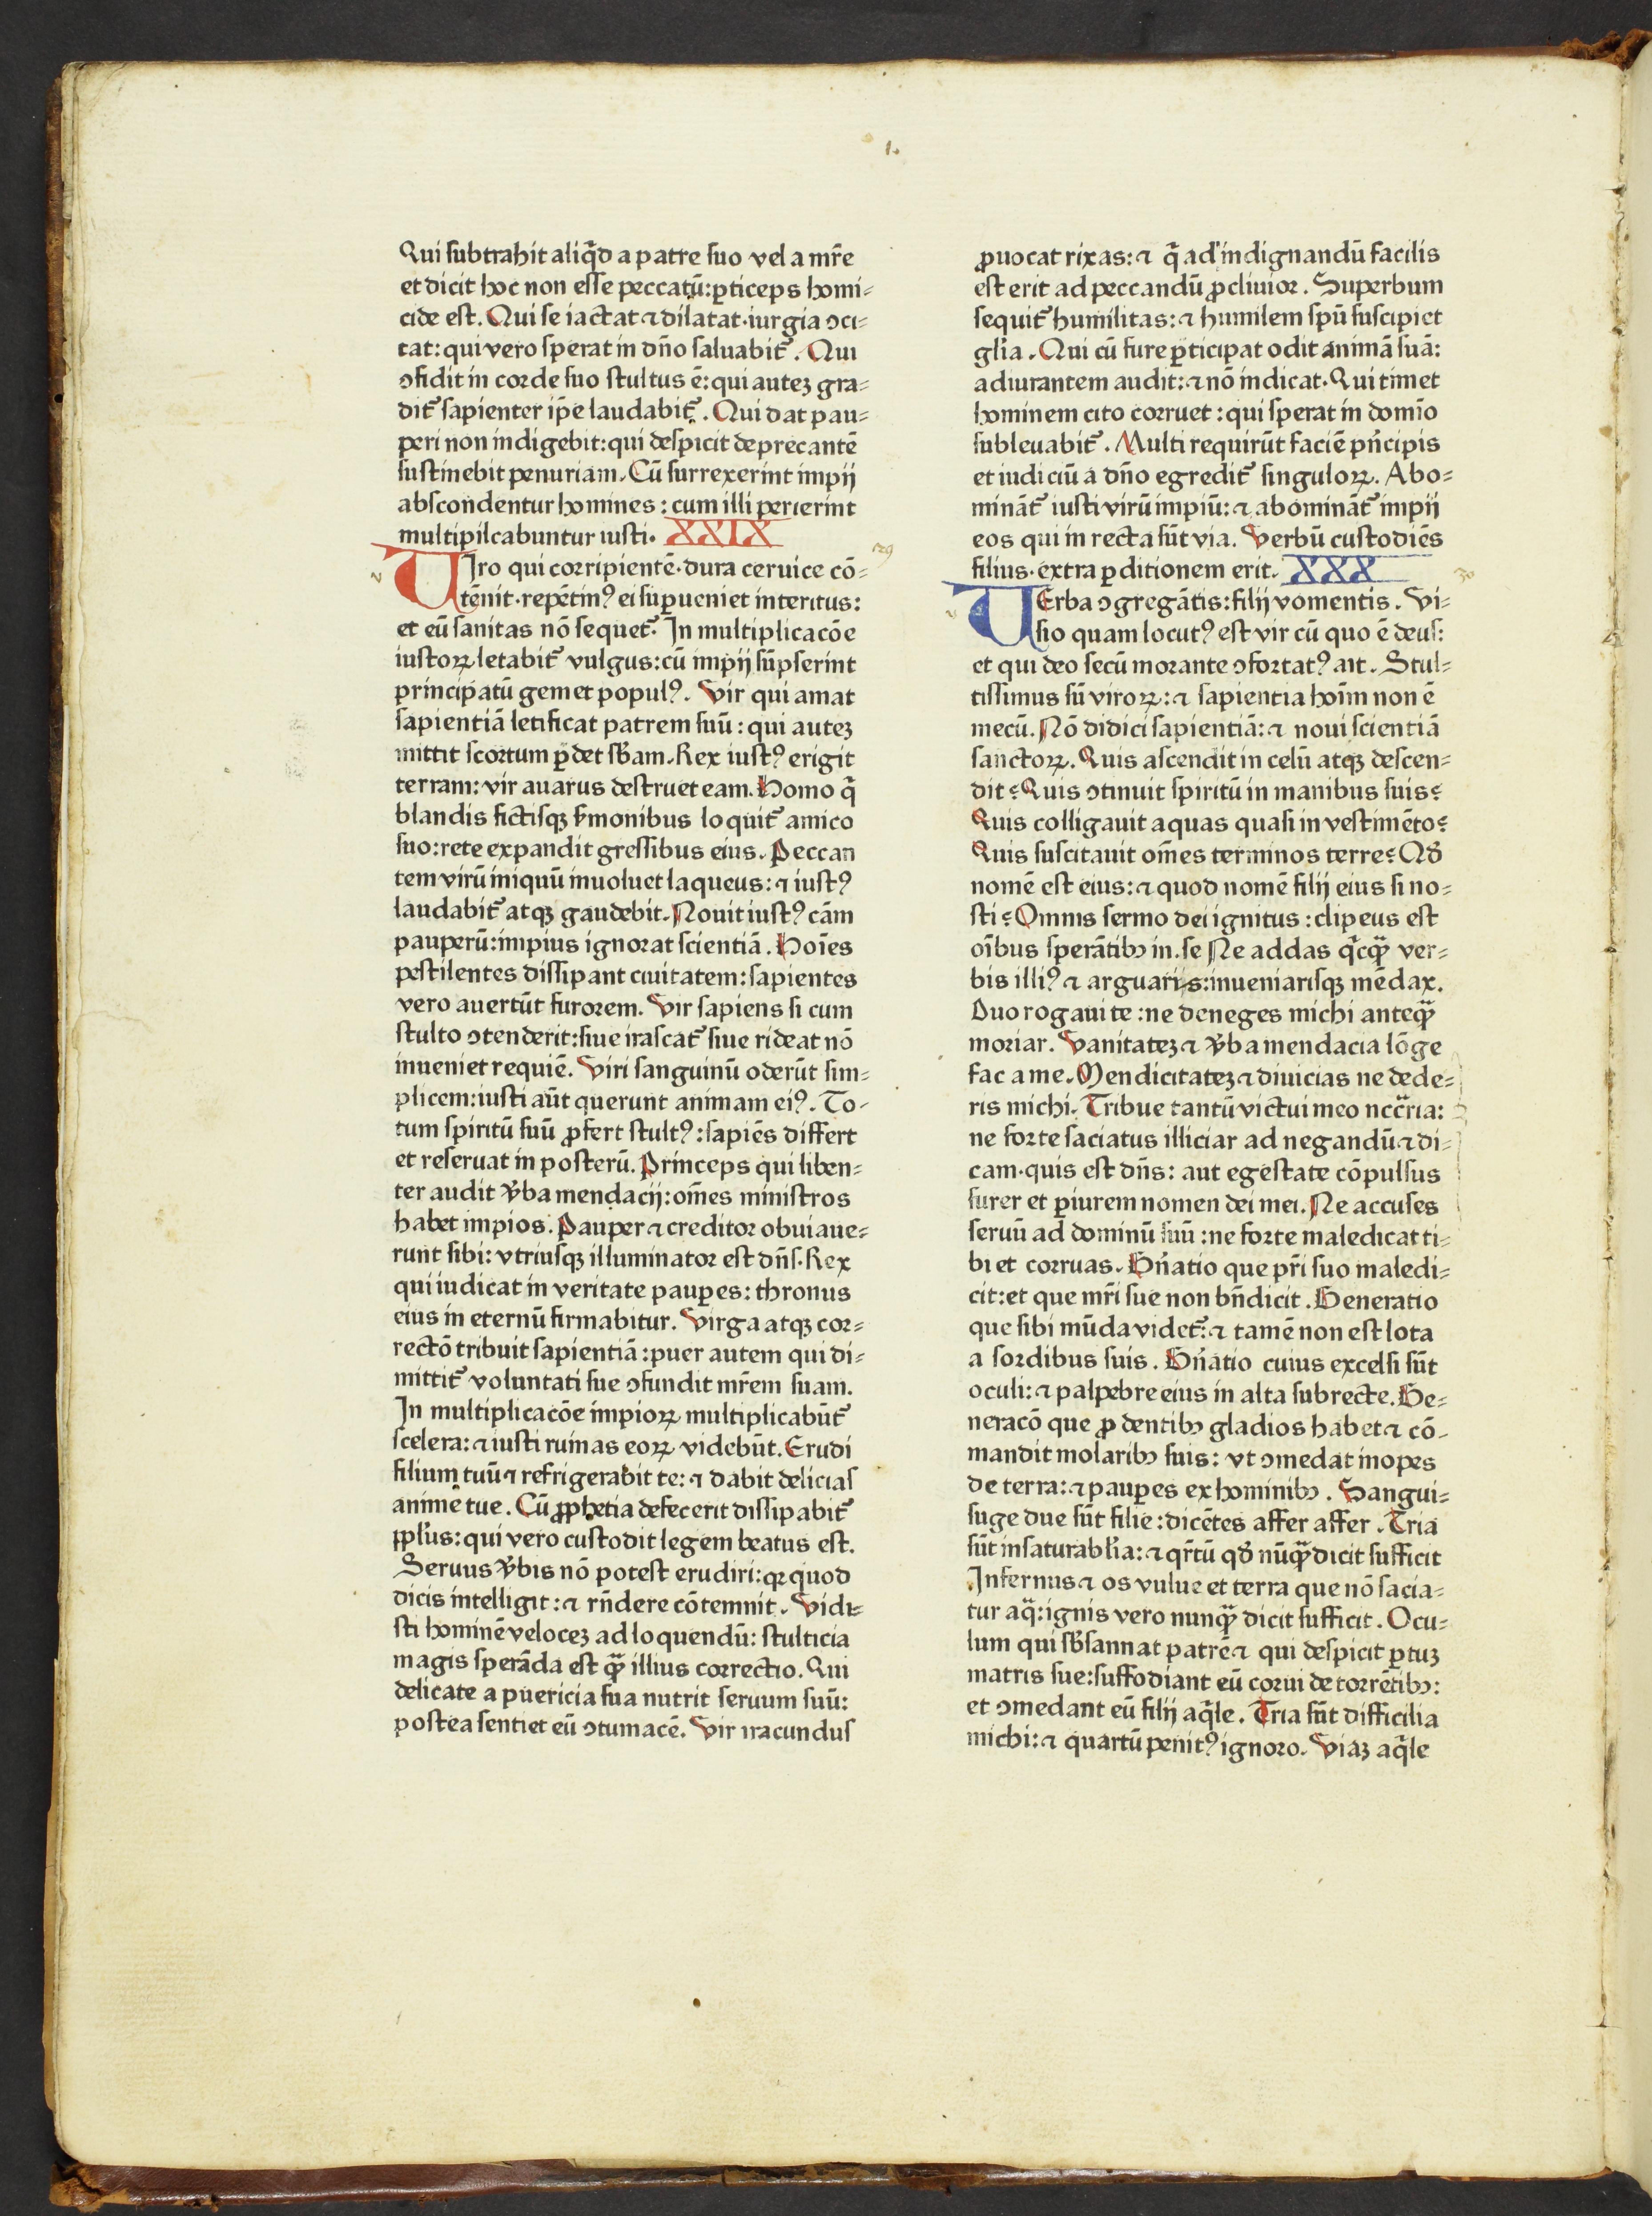 Qui subtrahit aliq̄d a patre suo vel a mr̄e
et dicit hoc non esse peccatū: ꝑticeps homi⸗
cide est. Qui se iactat ⁊ dilatat· iurgia ↄci⸗
tat: qui vero sperat in dn̄o saluabit᷑. Qui
ↄfidit in corde suo stultus ē: qui autez gra⸗
dit᷑ sapienter ip̄e laudabit᷑. Qui dat pau⸗
peri non indigebit: qui despicit deprecantē
sustinebit penuriam. Cū surrexerint impij
abscondentur homines: cum illi perierint
multipilcabuntur iusti. XXIX
VIro qui corripientē· dura ceruice cō⸗
tēnit· repētinꝰ ei suꝑueniet interitus:
et eū sanitas nō sequet᷑. In multiplicacōe
iustoꝝ letabit᷑ vulgus: cū impij sūpserint
principatū gemet populꝰ. Vir qui amat
sapientiā letificat patrem suū: qui autez
mittit scortum ꝑdet sb̄am. Rex iustꝰ erigit
terram: vir auarus destruet eam. Homo q̄
blandis fictisqꝫ ẜmonibus loquit᷑ amico
suo: rete expandit gressibus eius. Peccan
tem virū iniquū inuoluet laqueus: ⁊ iustꝰ
laudabit᷑ atqꝫ gaudebit. Nouit iustꝰ cām
pauperū: impius ignorat scientiā. Hoīes
pestilentes dissipant ciuitatem: sapientes
vero auertūt furorem. Vir sapiens si cum
stulto ↄtenderit: siue irascat᷑ siue rideat nō
inueniet requiē. Viri sanguinū oderūt sim⸗
plicem: iusti aūt querunt animam eiꝰ. To⸗
tum spiritū suū ꝓfert stultꝰ: sapiēs differt
et reseruat in posterū. Princeps qui liben⸗
ter audit v̄ba mendacij: om̄es ministros
habet impios. Pauper ⁊ creditor obuiaue⸗
runt sibi: vtriusqꝫ illuminator est dn̄s. Rex
qui iudicat in veritate pauꝑes: thronus
eius in eternū firmabitur. Virga atqꝫ cor⸗
rectō tribuit sapientiā: puer autem qui di⸗
mittit᷑ voluntati sue ↄfundit mr̄em suam.
In multiplicacōe impioꝝ multiplicabūt᷑
scelera: ⁊ iusti ruinas eoꝝ videbūt. Erudi
filium tuū ⁊ refrigerabit te: ⁊ dabit delicias
anime tue. Cū ꝓphetia defecerit dissipabit᷑
ppl̄us: qui vero custodit legem beatus est.
Seruus v̄bis nō potest erudiri: qꝛ quod
dicis intelligit: ⁊ rn̄dere cōtemnit. Vidi⸗
sti hominē velocez ad loquendū: stulticia
magis sperāda est qꝫ̄ illius correctio. Qui
delicate a puericia sua nutrit seruum suū:
postea sentiet eū ↄtumacē. Vir iracundus
ꝓuocat rixas: ⁊ q̄ ad indignandū facilis
est erit ad peccandū ꝓcliuior. Superbum
sequit᷑ humilitas: ⁊ humilem spū suscipiet
gl̄ia. Qui cū fure ꝑticipat odit animā suā:
adiurantem audit: ⁊ nō indicat. Qui timet
hominem cito corruet: qui sperat in domīo
subleuabit᷑. Multi requirūt faciē pn̄cipis
et iudiciū a dn̄o egredit᷑ singuloꝝ. Abo⸗
mināt᷑ iusti virū impiū: ⁊ abomināt᷑ impij
eos qui in recta sūt via. Verbū custodiēs
filius· extra ꝑditionem erit. XXX
VErba ↄgregātis: filij vomentis. Vi⸗
sio quam locutꝰ est vir cū quo ē deus:
et qui deo secū morante ↄfortatꝰ ait. Stul⸗
tissimus sū viroꝝ: ⁊ sapientia hoīm non ē
mecū. Nō didici sapientiā: ⁊ noui scientiā
sanctoꝝ. Quis ascendit in celū atqꝫ descen⸗
dit? Quis ↄtinuit spiritū in manibus suis?
Quis colligauit aquas quasi in vestimēto?
Quis suscitauit om̄es terminos terre? Qđ
nomē est eius: ⁊ quod nomē filij eius si no⸗
sti? Omnis sermo dei ignitus: clipeus est
oībus sperātibꝫ in. se Ne addas q̄cqꝫ̄ ver⸗
bis illiꝰ ⁊ arguaris: inueniarisqꝫ mēdax.
Duo rogaui te: ne deneges michi anteqꝫ̄
moriar. Vanitatez ⁊ v̄ba mendacia lōge
fac a me. Mendicitatez ⁊ diuicias ne dede⸗
ris michi. Tribue tantū victui meo ncc̄ria:
ne forte saciatus illiciar ad negandū ⁊ di⸗
cam· quis est dn̄s: aut egestate cōpulsus
furer et ꝑiurem nomen dei mei. Ne accuses
seruū ad dominū suū: ne forte maledicat ti⸗
bi et corruas. Gn̄atio que pr̄i suo maledi⸗
cit: et que mr̄i sue non bn̄dicit. Generatio
que sibi mūda videt᷑: ⁊ tamē non est lota
a sordibus suis. Gn̄atio cuius excelsi sūt
oculi: ⁊ palpebre eius in alta subrecte. Ge⸗
neracō que ꝓ dentibꝫ gladios habet ⁊ cō⸗
mandit molaribꝫ suis: vt ↄmedat inopes
de terra: ⁊ pauꝑes ex hominibꝫ. Sangui⸗
suge due sūt filie: dicētes affer affer. Tria
sūt insaturabl̄ia: ⁊ qr̄tū qđ nūqꝫ̄ dicit sufficit
Infernus ⁊ os vulue et terra que nō sacia⸗
tur aq̄: ignis vero nunqꝫ̄ dicit sufficit. Ocu⸗
lum qui sb̄sannat patrē ⁊ qui despicit ꝑtuz
matris sue: suffodiant eū corui de torrētibꝫ:
et ↄmedant eū filij aq̄le. Tria sūt difficilia
michi: ⁊ quartū penitꝰ ignoro. Viaz aq̄le